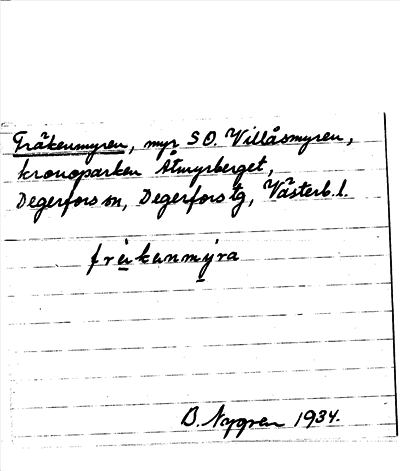 Fräkenmyren, myr SO. Villåsmyren,
kronoparken Åtmyrberget,
Degerfors sn, Degerfors tg, Västerb. l.
fräkenmýra
B. Nygren 1934.